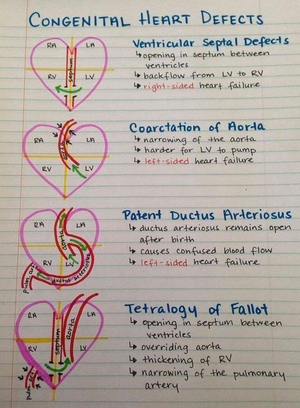 CONGENITAL HEART DEFECTS
Ventricular Septal Defects
↳ opening in septum between
ventricles
↳ backflow from LV to RV
↳ right-sided heart failure
RA LA
septum
RV LV
Coarctation of Aorta
↳ narrowing of the aorta
↳ harder for LV to pump
↳ left-sided heart failure
RA LA
aorta
RV LV
Patent Ductus Arteriosus
↳ ductus arteriosus remains open
after birth
↳ causes confused blood flow
↳ left-sided heart failure
RA LA
aorta
RV LV
ductus arteriosus
Tetralogy of Fallot
↳ opening in septum between
ventricles
↳ overriding aorta
↳ thickening of RV
↳ narrowing of the pulmonary
artery
RA LA
septum
aorta
RV LV